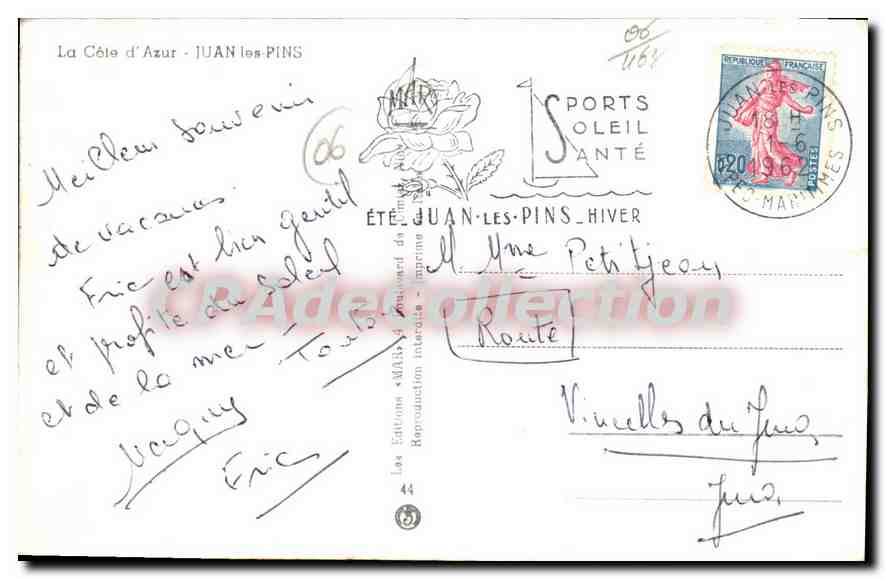 La Côte d'Azur - JUAN les-PINS
06
1162
Meilleur Souvenir
de vacances.
Eric est bien gentil
et profite du Soleil
et de la mer -
Tonton
Maguy
Eric
06
MAR
SPORTS
SOLEIL
SANTÉ
ÉTÉ_JUAN-LES-PINS_HIVER
REPUBLIQUE FRANÇAISE
0,20
POSTES
JUAN LES PINS
18 H
1 - 6
1962
ALPES-MARITIMES
M. Mme Petitjean
Route
Vincelles du Jura
Jura
Les Editions «MAR» 4 Boulevard de
Reproduction interdite - Imprimé
44
CPAdeCollection